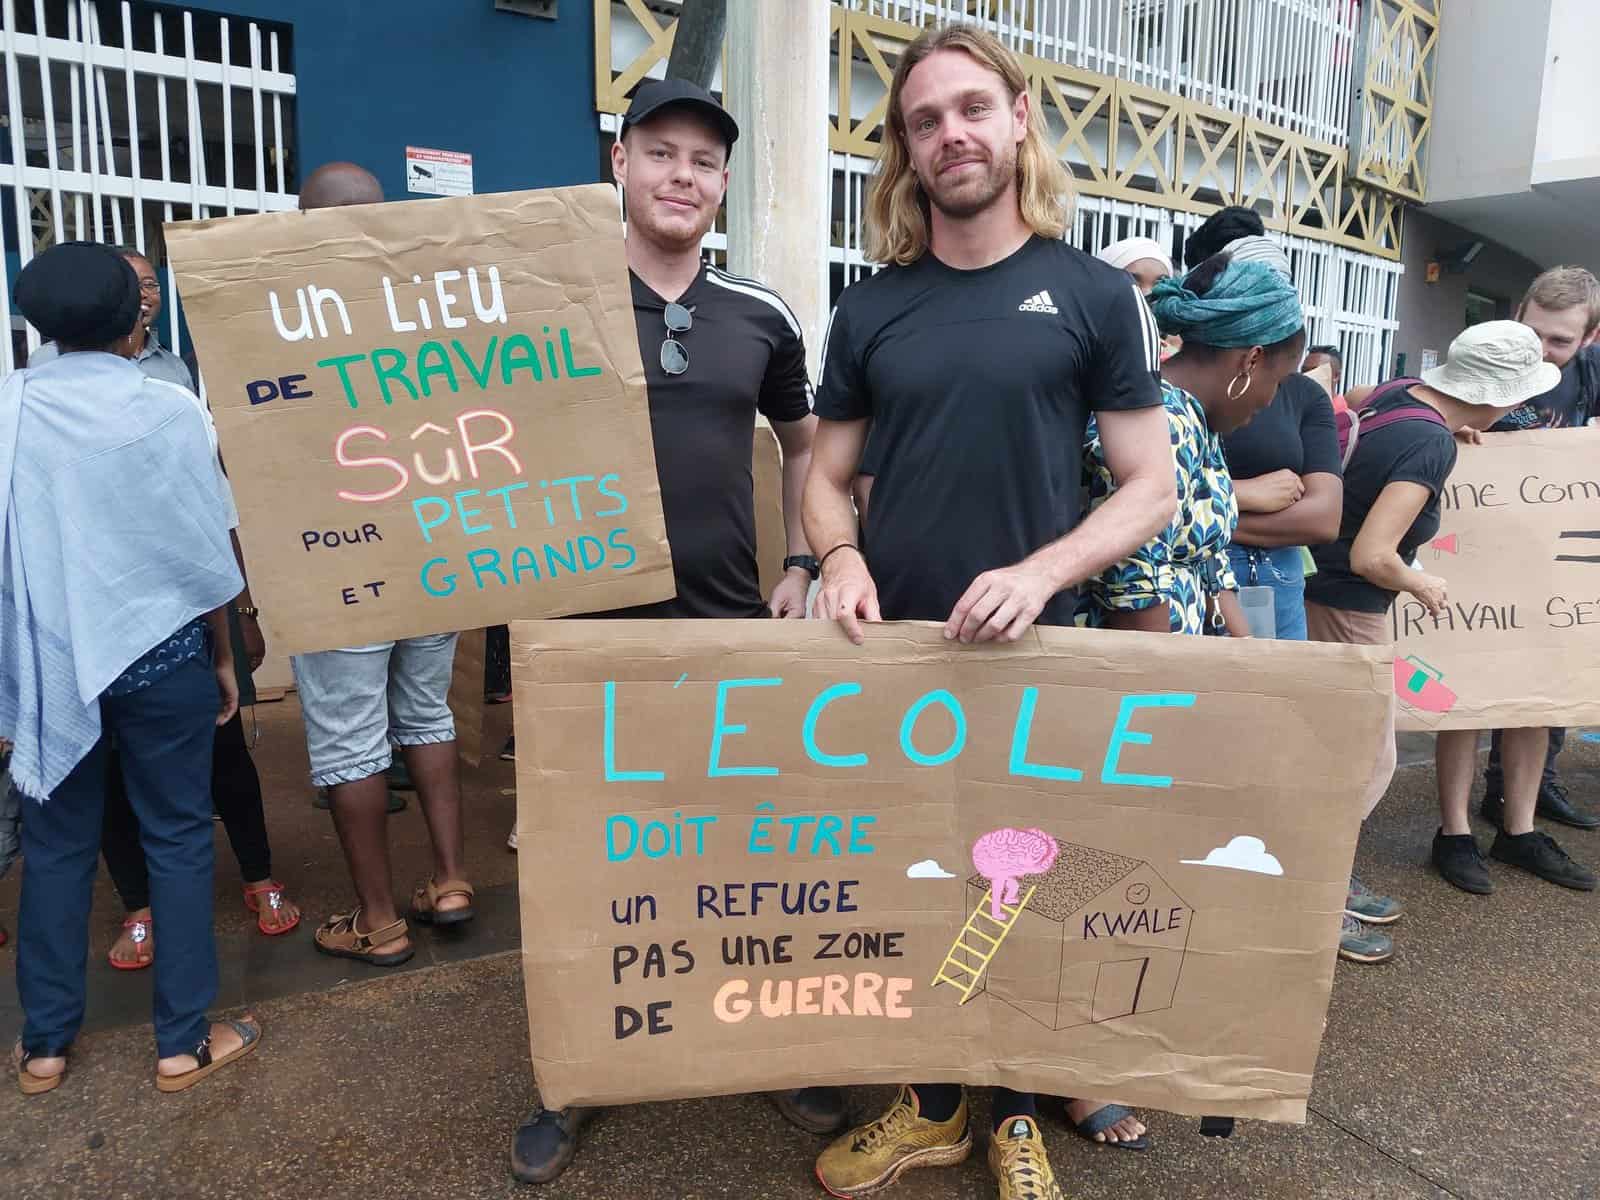 un LiEU
DE TRAVAiL
SûR
POUR PETiTS
ET GRANDS
adidas
L'ECOLE
DOiT ÊTRE
un REFUGE
PAS une ZONE
DE GUERRE
KWALE
TRAVAIL